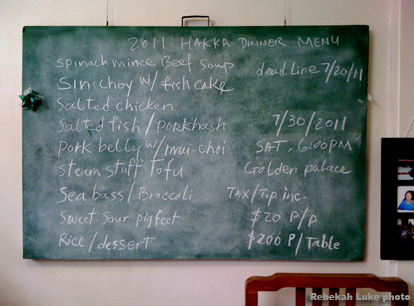 2011 HAKKA DINNER MENU
spinach mince Beef soup
deadLine 7/20/11
Sin choy w/ fish cake
Salted chicken
Salted fish/porkhash
7/30/2011
Pork belly w/mui-choi
SAT, 6:00PM
steam stuff Tofu
Golden palace
Sea bass/Broccoli
TAX/Tip inc.
Sweet sour pig feet
$20 P/p
Rice/dessert
$200 P/Table
Rebekah Luke photo